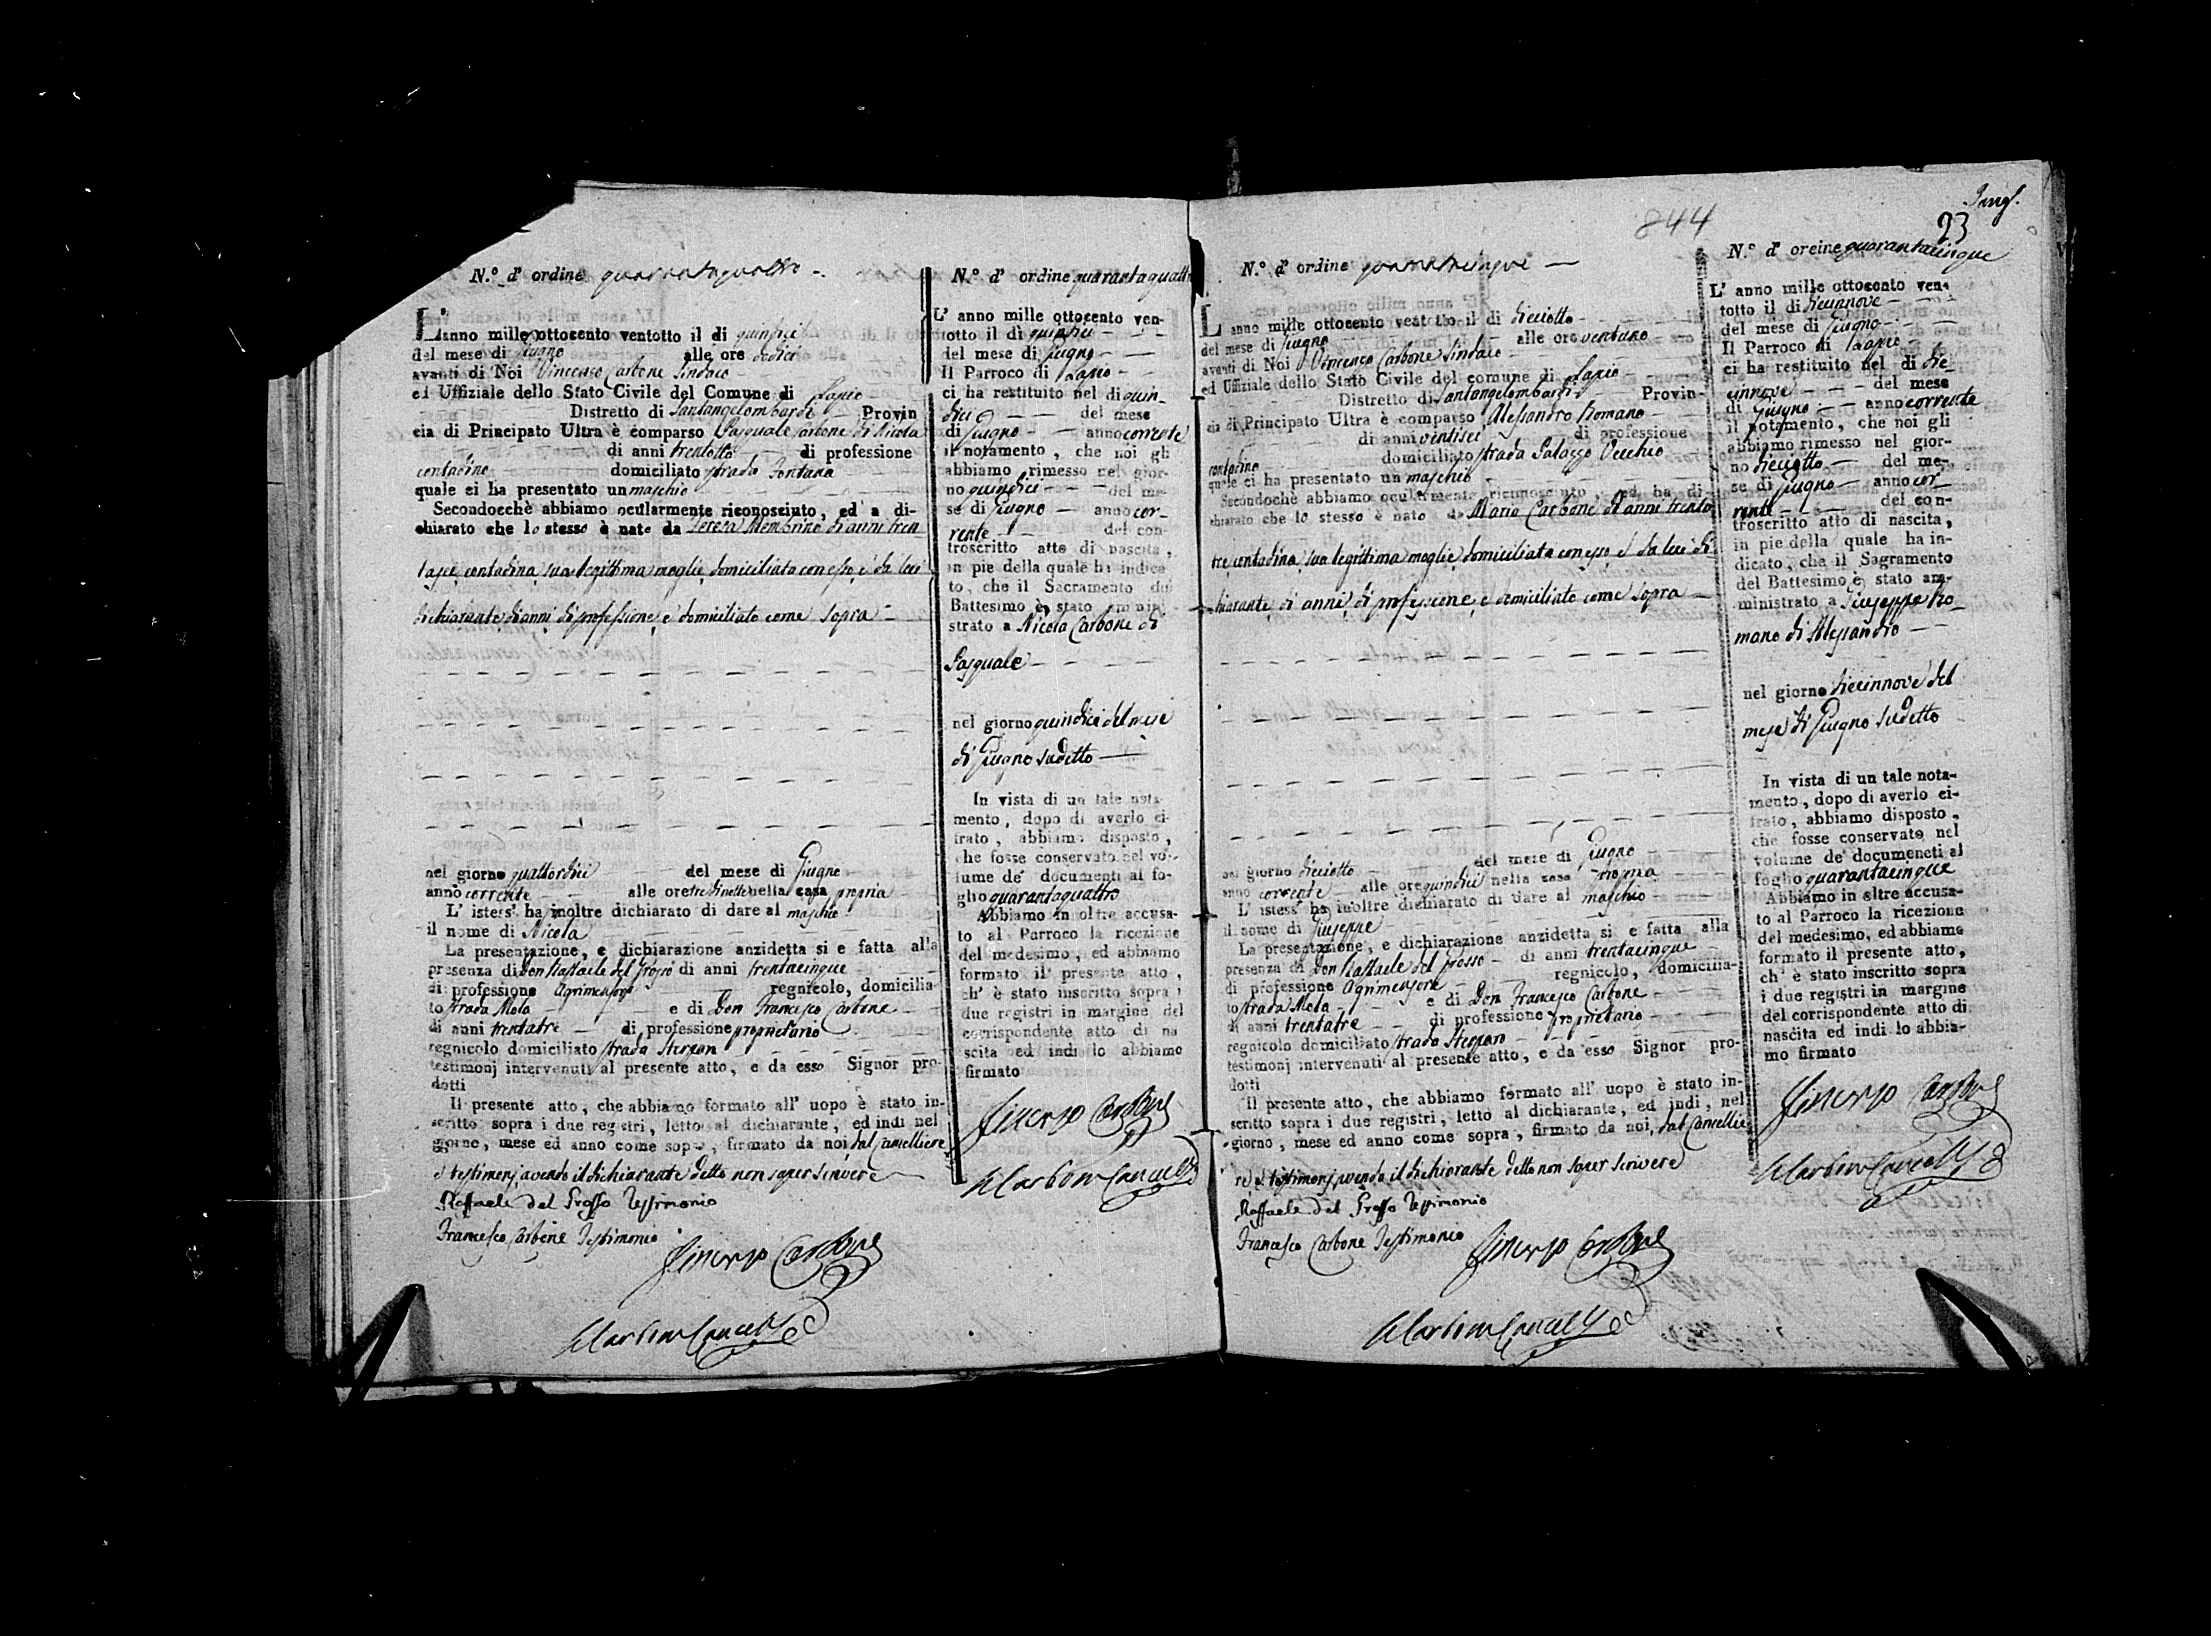 N.° d' ordine quarantaquattro
L' anno mille ottocento ventotto il di quindici
del mese di Giugno alle ore dodici
avanti di Noi Vincenzo Carbone Sindaco
ed Uffiziale dello Stato Civile del Comune di Lapio
Distretto di Santangelombardi Provin
cia di Principato Ultra è comparso Pasquale Carbone di Nicola
di anni trentotto di professione
contadino domiciliato strada Fontana
quale ci ha presentato un maschio
Secondocchè abbiamo ocularmente riconosciuto, ed' a di-
chiarato che lo stesso è nato da Teresa Membrino di anni tren
tasei contadina sua legittima moglie domiciliata con esso, e da lui
dichiarante di anni, di professione, e domiciliato come sopra
nel giorno quattordici del mese di Giugno
anno corrente alle ore nella casa propria
L' istess' ha inoltre dichiarato di dare al maschio
il nome di Nicola
La presentazione, e dichiarazione anzidetta si e fatta alla
presenza di Don Raffaele del Grosso di anni trentacinque
di professione Agrimensore regnicolo, domicilia-
to strada Mela e di Don Francesco Carbone
di anni trentatre di professione proprietario
regnicolo domiciliato strada
testimonj intervenuti al presente atto, e da esso Signor pro-
dotti
Il presente atto, che abbiamo formato all' uopo è stato in-
scritto sopra i due registri, letto al dichiarante, ed indi nel
giorno, mese ed anno come sopra, firmato da noi, dal Cancelliere
e testimonj avendo il dichiarante detto non saper scrivere
Raffaele del Grosso Testimonio
Francesco Carbone Testimonio
Vincenzo Carbone
Carbone Cancelliere
N.° d' ordine quarantaquattro
L' anno mille ottocento ven-
totto il di quindici
del mese di Giugno
Il Parroco di Lapio
ci ha restituito nel di quin-
dici del mese
di Giugno anno corrente
il notamento, che noi gli
abbiamo rimesso nel gior-
no quindici del me-
se di Giugno anno cor-
rente del con-
troscritto atto di nascita,
in pie della quale ha indica
to, che il Sacramento del
Battesimo è stato ammini-
strato a Nicola Carbone di
Pasquale
nel giorno quindici del mese
di Giugno sudetto
In vista di un tale nota-
mento, dopo di averlo ci-
frato, abbiamo disposto,
che fosse conservato nel vo-
lume de' documenti al fo-
glio quarantaquattro
Abbiamo in oltre accusa-
to al Parroco la ricezione
del medesimo, ed abbiamo
formato il presente atto,
ch' è stato inscritto sopra i
due registri in margine del
corrispondente atto di na
scita ed indi lo abbiamo
firmato
Vincenzo Carbone
Carbone Cancelliere
844
23
N.° d' ordine quarantacinque
L' anno mille ottocento ventotto il di dieciotto
del mese di Giugno alle ore ventuno
avanti di Noi Vincenzo Carbone Sindaco
ed Uffiziale dello Stato Civile del comune di Lapio
Distretto di Santangelombardi Provin-
cia di Principato Ultra è comparso Alessandro Romano
di anni ventisei di professione
contadino domiciliato strada Palazzo Vecchio
quale ci ha presentato un maschio
Secondochè abbiamo ocularmente riconosciuto, ed ha di-
chiarato che lo stesso è nato da Maria Carbone di anni trenta
tre contadina, sua legittima moglie domiciliata con esso, e da lui di-
chiarante, di anni, di professione, e domiciliato come sopra
nel giorno dieciotto del mese di Giugno
anno corrente alle ore quindici nella casa propria
L' istess' ha inoltre dichiarato di dare al maschio
il nome di Giuseppe
La presentazione, e dichiarazione anzidetta si e fatta alla
presenza di Don Raffaele del Grosso di anni trentacinque
di professione Agrimensore regnicolo, domicilia-
to strada Mela e di Don Francesco Carbone
di anni trentatre di professione proprietario
regnicolo domiciliato strada
testimonj intervenuti al presente atto, e da esso Signor pro-
dotti
Il presente atto, che abbiamo formato all' uopo è stato in-
scritto sopra i due registri, letto al dichiarante, ed indi, nel
giorno, mese ed anno come sopra, firmato da noi, dal Cancellie
re e testimonj avendo il dichiarante detto non saper scrivere
Raffaele del Grosso Testimonio
Francesco Carbone Testimonio
Vincenzo Carbone
Carbone Cancelliere
N.° d' oreine quarantacinque
L' anno mille ottocento ven-
totto il di diecinnove
del mese di Giugno
Il Parroco di Lapio
ci ha restituito nel di die-
cinnove del mese
di Giugno anno corrente
il notamento, che noi gli
abbiamo rimesso nel gior-
no dieciotto del me-
se di Giugno anno cor-
rente del con-
troscritto atto di nascita,
in pie della quale ha in-
dicato, che il Sagramento
del Battesimo è stato am-
ministrato a Giuseppe Ro-
mano di Alessandro
nel giorno diecinnove del
mese di Giugno sudetto
In vista di un tale nota-
mento, dopo di averlo ci-
frato, abbiamo disposto,
che fosse conservato nel
volume de' documeneti al
foglio quarantacinque
Abbiamo in oltre accusa-
to al Parroco la ricezione
del medesimo, ed abbiamo
formato il presente atto,
ch' è stato inscritto sopra
i due registri in margine
del corrispondente atto di
nascita ed indi lo abbia-
mo firmato
Vincenzo Carbone
Carbone Cancelliere